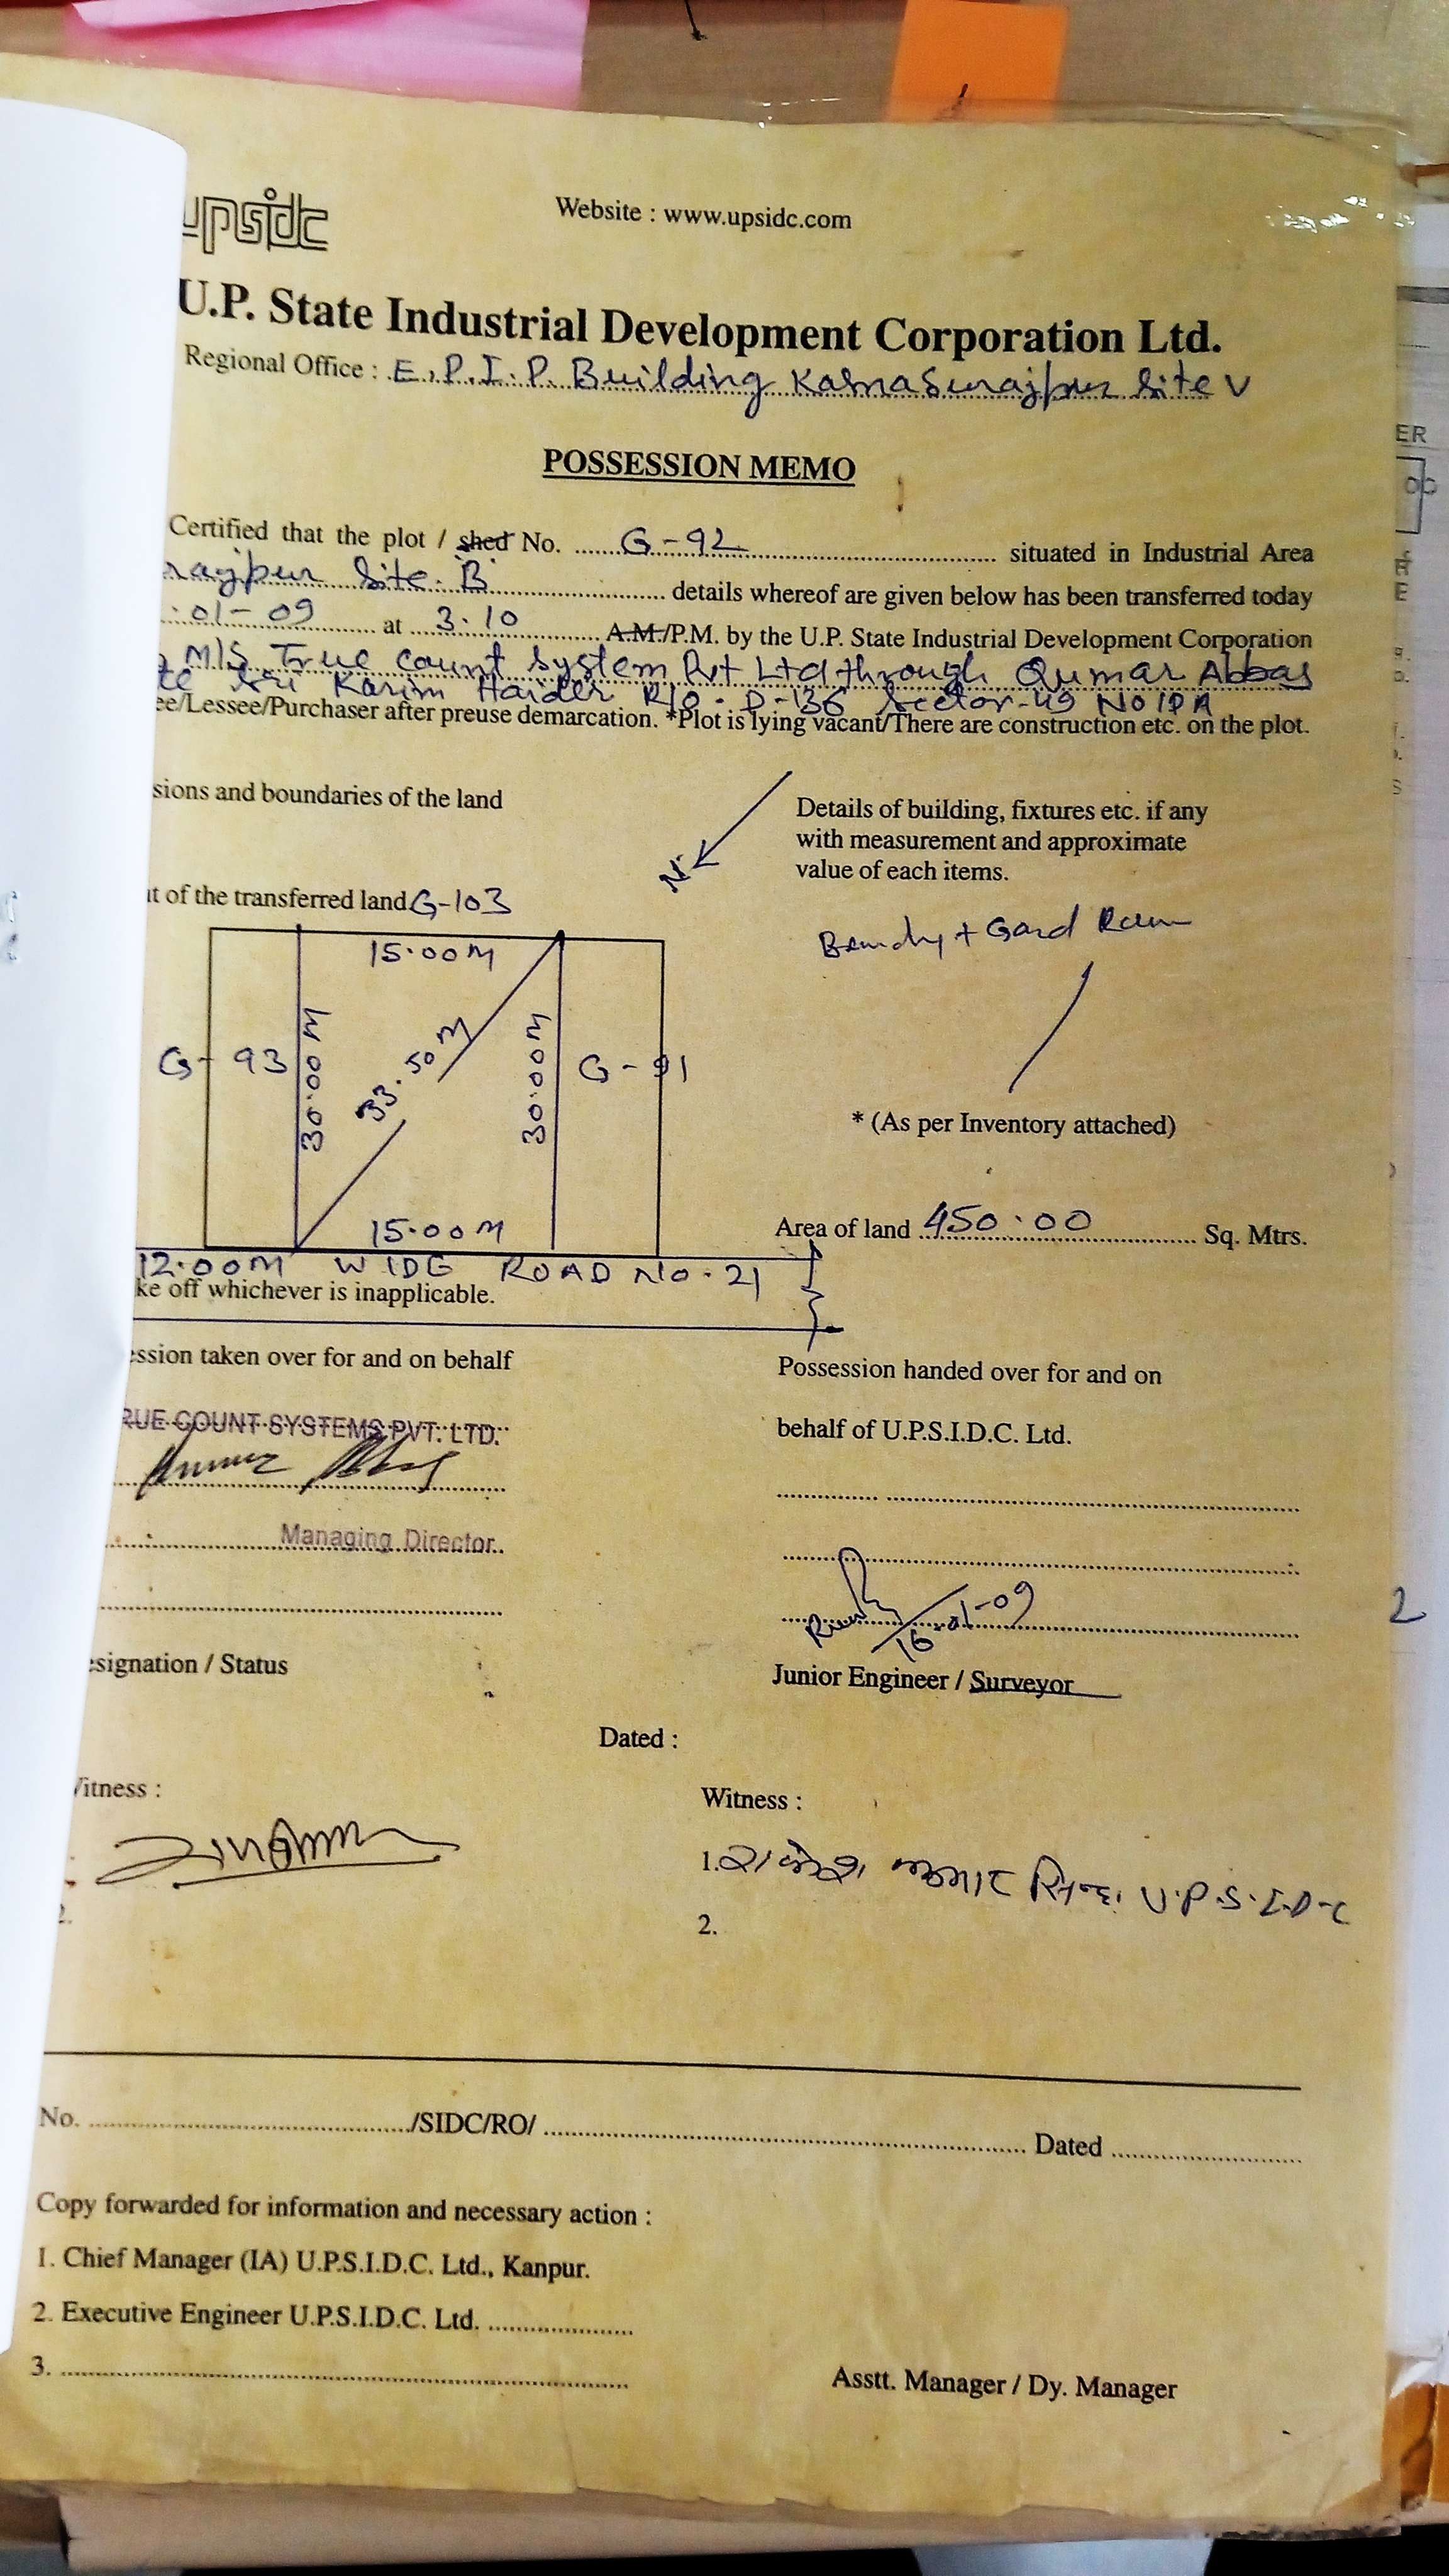 upsidc
Website : www.upsidc.com
U.P. State Industrial Development Corporation Ltd.
Regional Office : E.P.I.P. Building Kasna Surajpur Site V
POSSESSION MEMO
Certified that the plot / shed No. G-92 situated in Industrial Area
rajpur Site. B details whereof are given below has been transferred today
01-09 at 3.10 A.M./P.M. by the U.P. State Industrial Development Corporation
M/S True Count System Pvt Ltd through Qumar Abbas
Sri Karim Haider R/o - D-136 Sector-49 NOIDA
ee/Lessee/Purchaser after preuse demarcation. *Plot is lying vacant/There are construction etc. on the plot.
sions and boundaries of the land
Details of building, fixtures etc. if any
with measurement and approximate
value of each items.
N
t of the transferred land G-103
+ Gard
15.00M
G-93
30.00M
33.50M
30.00M
G-91
* (As per Inventory attached)
15.00M
Area of land 450.00 Sq. Mtrs.
12.00M WIDE ROAD No. 21
ke off whichever is inapplicable.
ession taken over for and on behalf
Possession handed over for and on
RUE COUNT SYSTEMS PVT. LTD.
behalf of U.P.S.I.D.C. Ltd.
Managing Director
16-01-09
2
esignation / Status
Junior Engineer / Surveyor
Dated :
Witness :
Witness :
1. U.P.S.I.D.C
2.
2.
No. /SIDC/RO/ Dated
Copy forwarded for information and necessary action :
1. Chief Manager (IA) U.P.S.I.D.C. Ltd., Kanpur.
2. Executive Engineer U.P.S.I.D.C. Ltd.
3.
Asstt. Manager / Dy. Manager